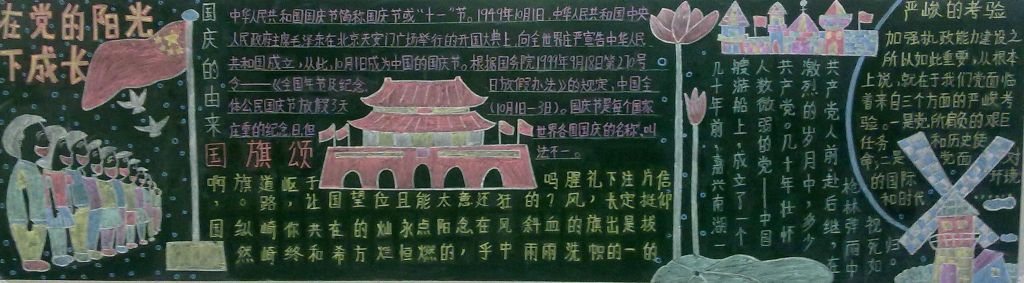 在党的阳光
下成长
国庆的由来
中华人民共和国国庆节简称国庆节或“十一”节。1949年10月1日,中华人民共和国中央
人民政府主席毛泽东在北京天安门广场举行的开国大典上,向全世界庄严宣告中华人民
共和国成立,从此,10月1日成为中国的国庆节。根据国务院1999年9月18日第270号
令——《全国年节及纪念日放假办法》的规定,中国全
体公民国庆节放假3天(10月1日-3日)。国庆节是每个国家
庄重的纪念日,但世界各国国庆的名称,叫
法不一。
国旗颂
啊，国
旗。纵然
道路崎
岖，你终
于让共和
国在希
望的方
位灿烂
且永恒
能点燃
太阳的
意念，
还在乎
狂风中
的斜雨
吗？血雨
腥风的洗
礼，旗帜
下长出的
注定是一
片挺拔的
信仰
几十年前，嘉兴南湖一
艘游船上，成立了一个
人数微弱的党——中国
共产党。几十年壮怀
激烈的岁月中，多少
共产党人前赴后继，在
枪林弹雨中
视死如归。
严峻的考验
加强执政能力建设之
所以如此重要，从根本
上说，就在于我们党面临
着来自三个方面的严峻考
验。一是党所肩负的艰巨
任务和历史使
命，二是党面对
的国际环境
和时代